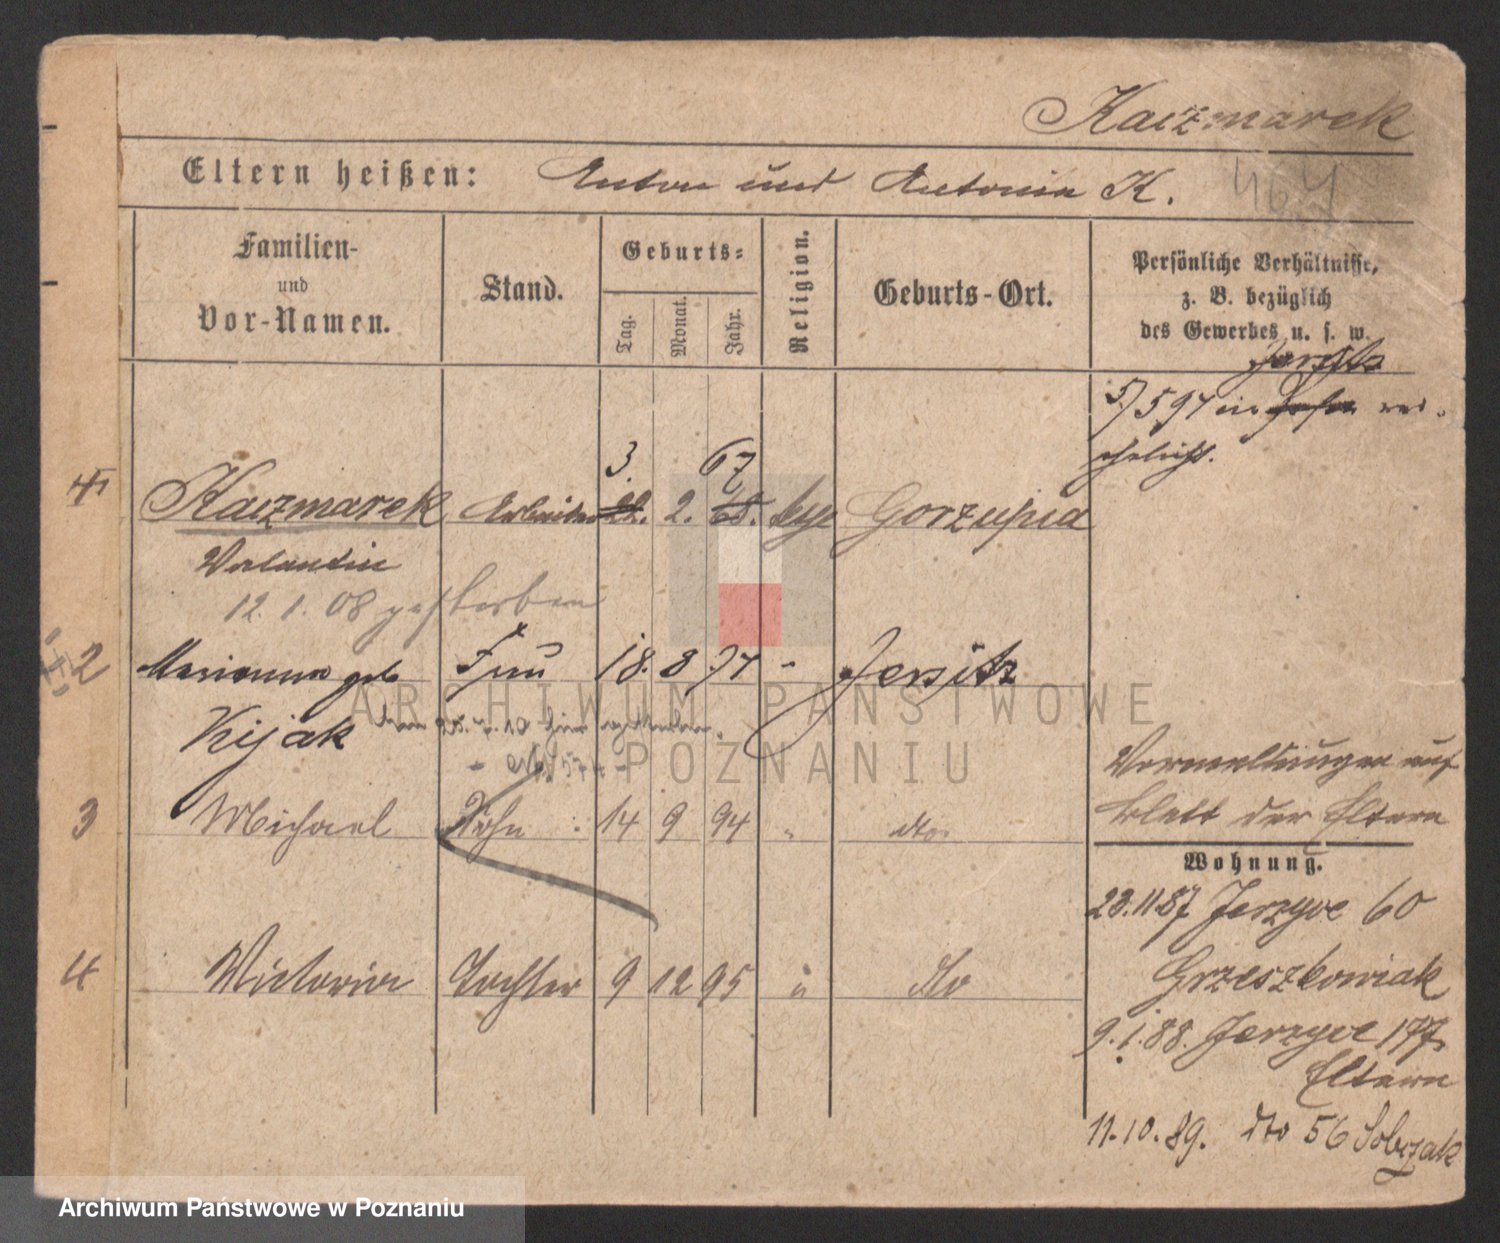 Kaczmarek
Eltern heißen: Anton und Antonia K.
467
Familien-
und
Vor-Namen.
Stand.
Geburts-
Tag.
Monat.
Jahr.
Religion.
Geburts-Ort.
Persönliche Verhältnisse,
z. B. bezüglich
des Gewerbes u. s. w.
Jersitz
5/5 97 in Posen ver-
ehelicht.
3. 67
1 Kaczmarek Arbeiter 22. 2. 68. Gorzupia
Valentin
12. 1. 08 gestorben
2 Marianna geb Frau 18. 8 74 " Jersitz
Kijak
Vermeldungen auf
Blatt der Eltern
3 Michael Sohn 14 9 94 " dto
Wohnung.
23.11.87 Jerzyce 60
Grzeszkowiak
4 Victoria Tochter 9 12 95 " dto
9.1.88. Jerzyce 177
Eltern
11.10.89. dto 56 Sobczak
ARCHIWUM PAŃSTWOWE
POZNANIU
Archiwum Państwowe w Poznaniu